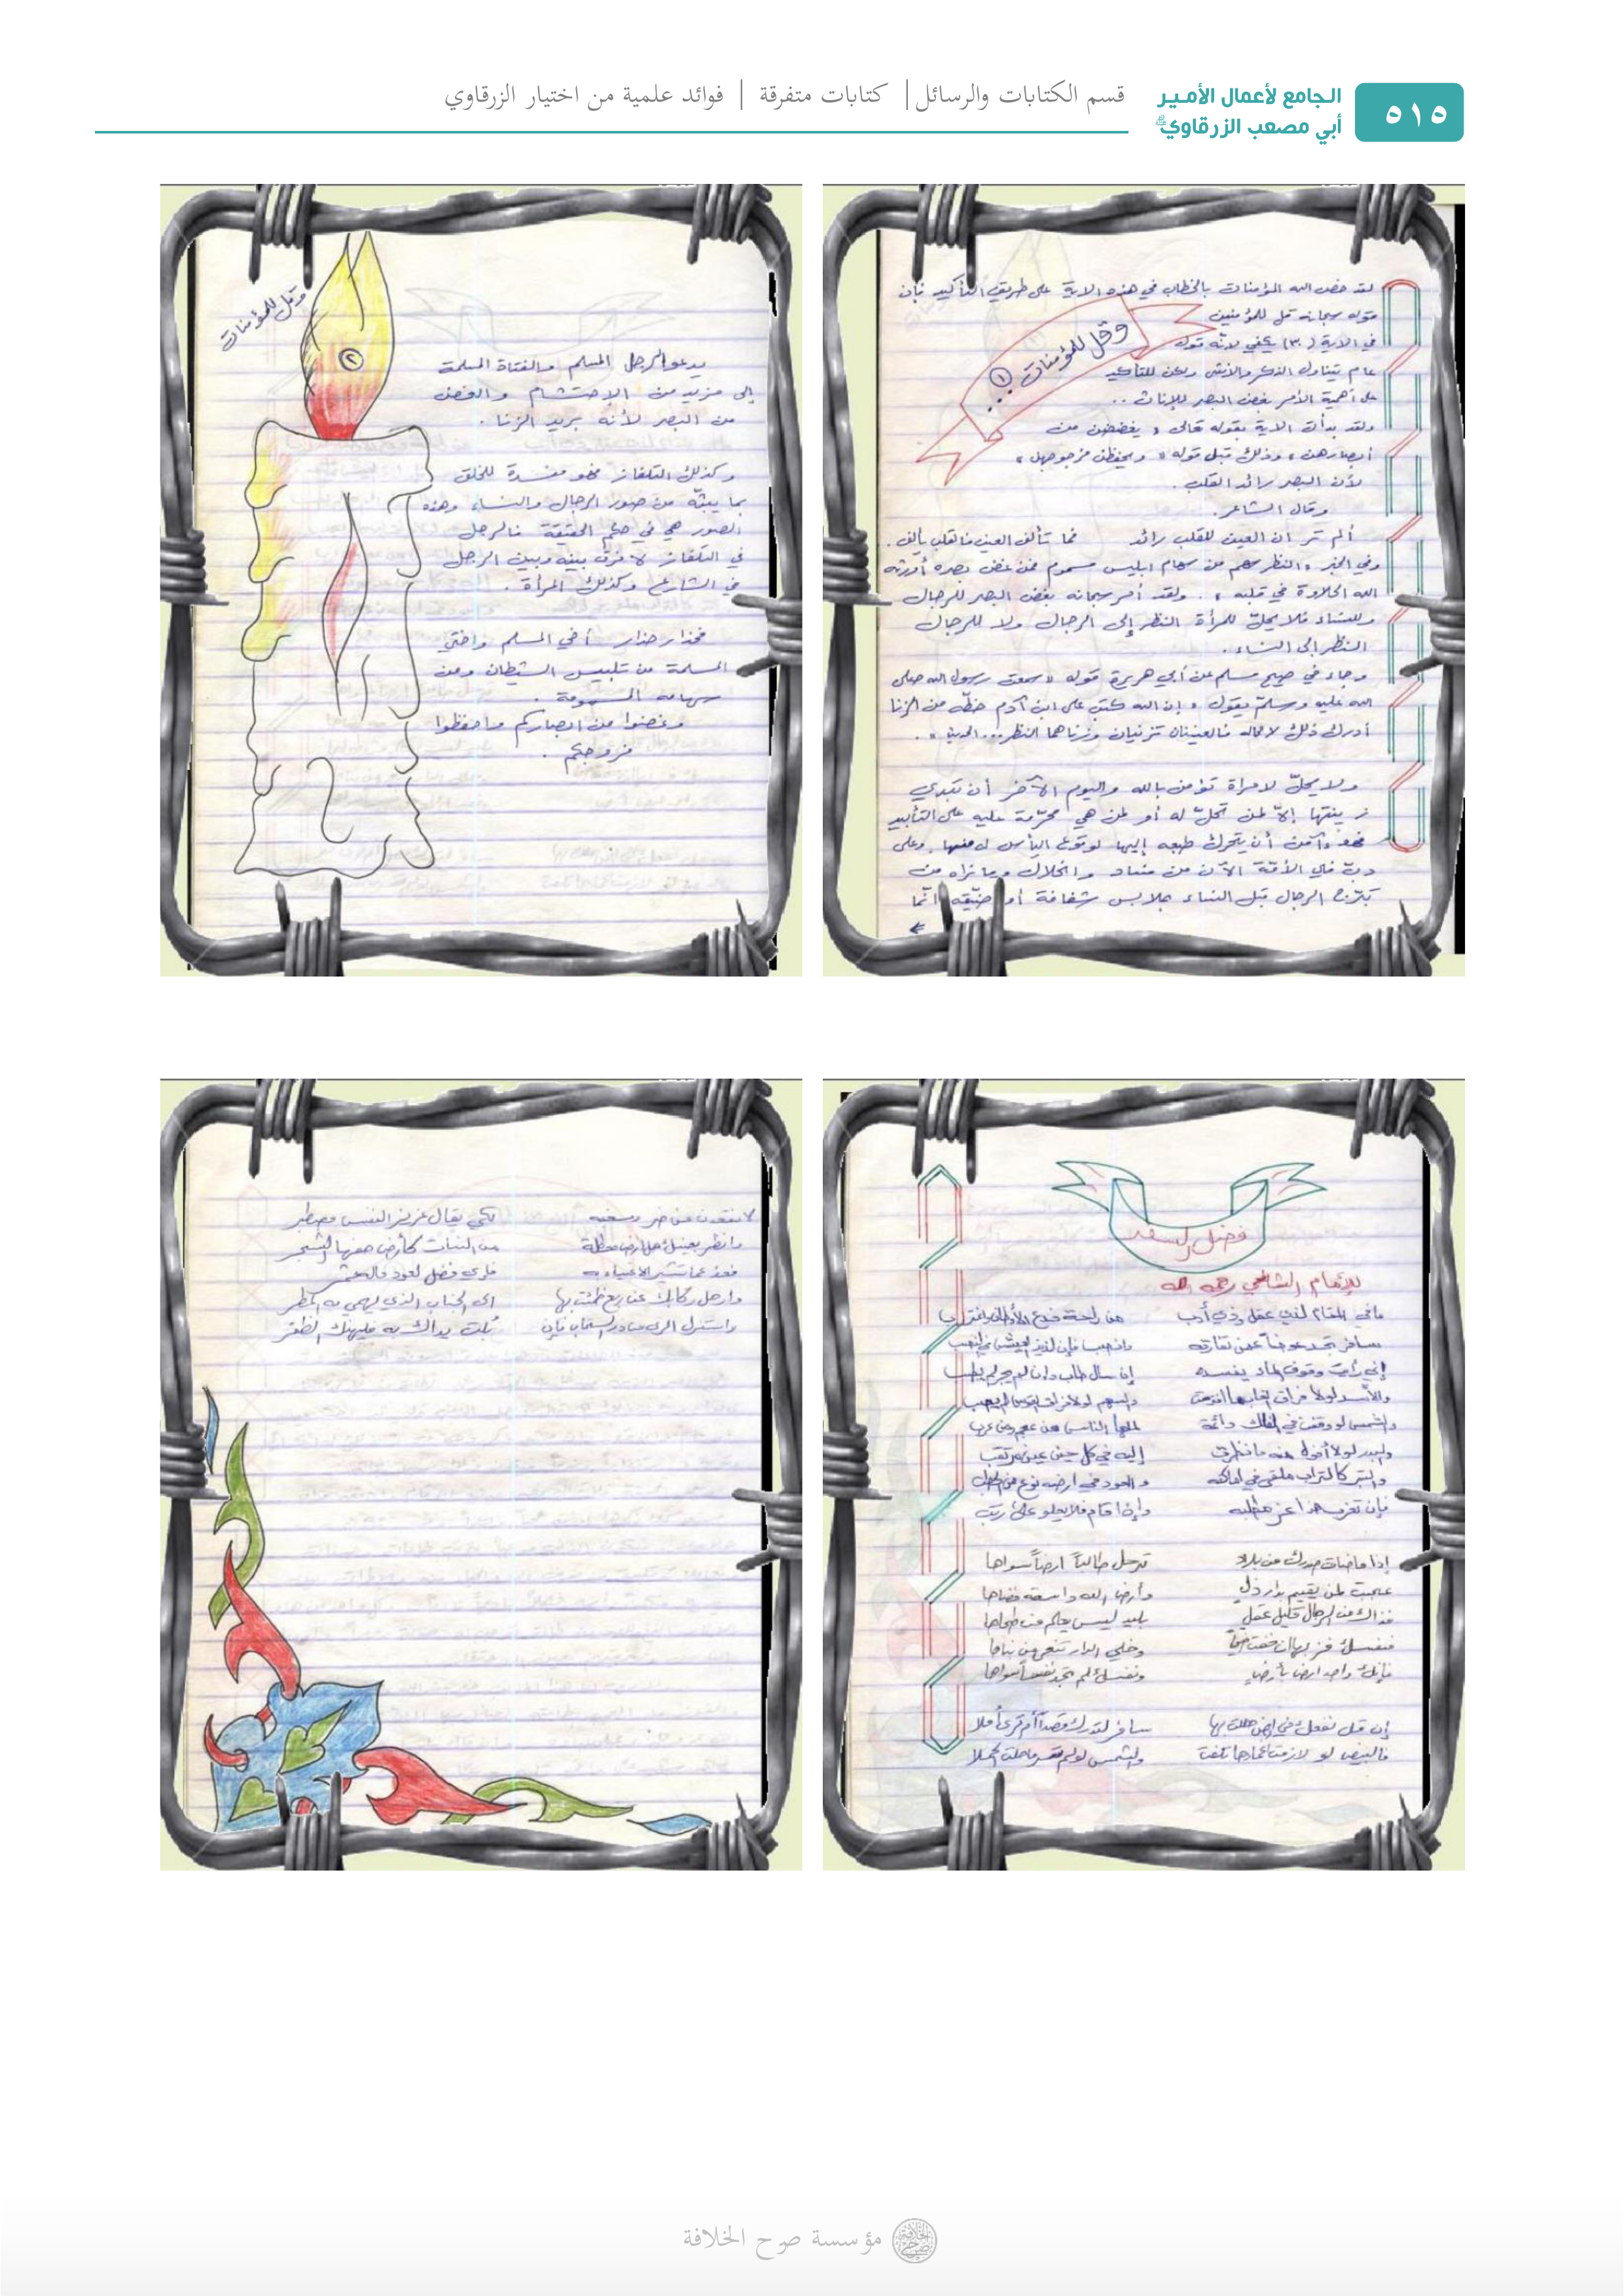 ٥١٥
الجامع لأعمال الأمير
أبي مصعب الزرقاوي
قسم الكتابات والرسائل | كتابات متفرقة | فوائد علمية من اختيار الزرقاوي
وقل للمؤمنات ١
لقد خص الله المؤمنات بالخطاب في هذه الاية على طريق التأكيد فإن
قوله سبحانه قل للمؤمنين
في الاية (٣٠) يكفي لانه قول
عام يتناول الذكر والأنثى ولكن للتأكيد
على أهمية الأمر بغض البصر للإناث ..
ولقد بدأت الاية بقوله تعالى « يغضضن من
أبصارهن » وذلك قبل قوله « ويحفظن فروجهن »
لأن البصر رائد القلب .
وقال الشاعر .
ألم تر ان العين للقلب رائد فما تألف العين فالقلب يألف .
وفي الخبر « النظر سهم من سهام ابليس مسموم فمن غض بصره أورثه
الله الحلاوة في قلبه » . ولقد أمر سبحانه بغض البصر للرجال
وللنساء فلا يحلّ للمرأة النظر إلى الرجال ولا للرجال
النظر الى النساء .
وجاء في صحيح مسلم عن أبي هريرة قوله « سمعت رسول الله صلى
الله عليه وسلم يقول « إن الله كتب على ابن آدم حظّه من الزنا
أدرك ذلك لا محاله فالعينان تزنيان وزناهما النظر ... الحديث » .
ولا يحلّ لامراة تؤمن بالله واليوم الآخر أن تبدي
زينتها إلاّ لمن تحلّ له أو لمن هي محرّمة عليه على التأبيد
فهو آمن أن يتحرك طبعه إليها لوقوع اليأس له منها . وعلى
دبّ في الأمّة الآن من فساد وانحلال وما نراه من
تبرّج الرجال قبل النساء بملابس شفافة أو ضيّقه انّما
وقل للمؤمنات
٢
يدعو الرجل المسلم والفتاة المسلمة
إلى مزيد من الإحتشام والغض
من البصر لأنه بريد الزنا .
وكذلك التلفاز فهو مفسدة للخلق
بما يبثّه من صور الرجال والنساء وهذه
الصور هي في حكم الحقيقة فالرجل
في التلفاز لا فرق بينه وبين الرجل
في الشارع وكذلك المرأة .
فحذار حذار أخي المسلم واختي
المسلمة من تلبيس الشيطان ومن
سهامه المسمومة .
وغضوا من ابصاركم واحفظوا
فروجكم .
فضل السفر
للإمام الشافعي رحمه الله
مافي المقام لذي عقل وذي أدب من راحة فدع الأوطان واغترب
سافر تجد عوضاً عمن تفارقه وانصب فإن لذيذ العيش في النصب
إني رأيت وقوف الماء يفسده إن سال طاب وان لم يجر لم يطب
والأسد لولا فراق الغاب ما افترست والسهم لولا فراق القوس لم يصب
والشمس لو وقفت في الفلك دائمة لملها الناس من عجم ومن عرب
والبدر لولا أفول منه ما نظرت إليه في كل حين عين مرتقب
والتبر كالترب ملقى في اماكنه والعود في ارضه نوع من الحطب
فإن تغرب هذا عز مطلبه وإن اقام فلا يعلو على رتب
إذا ما ضاق صدرك من بلاد ترحل طالباً ارضاً سواها
عجبت لمن يقيم بدار ذل وأرض الله واسعة فضاها
فذاك من الرجال قليل عقل بليد ليس يعلم من طحاها
فنفسك فز بها ان خفت ضيماً وخلي الدار تنعى من بناها
فإنك واجد ارضا بأرض ونفسك لم تجد نفساً سواها
سافر لتدرك قصداً
لا تقعدن على ضر ومسغبة لكي يقال عزيز النفس مصطبر
وانظر بعينك هل ارض معطلة من النبات كأرض حفها الشجر
فعد عما تشير الاغبياء به فاي فضل لعود ماله ثمر
وارحل ركابك عن ربع ظمئت بها الى الجناب الذي يهمي به المطر
واستنزل الري من در السحاب فإن بُلت يداك به فليهنك الظفر
مؤسسة صرح الخلافة